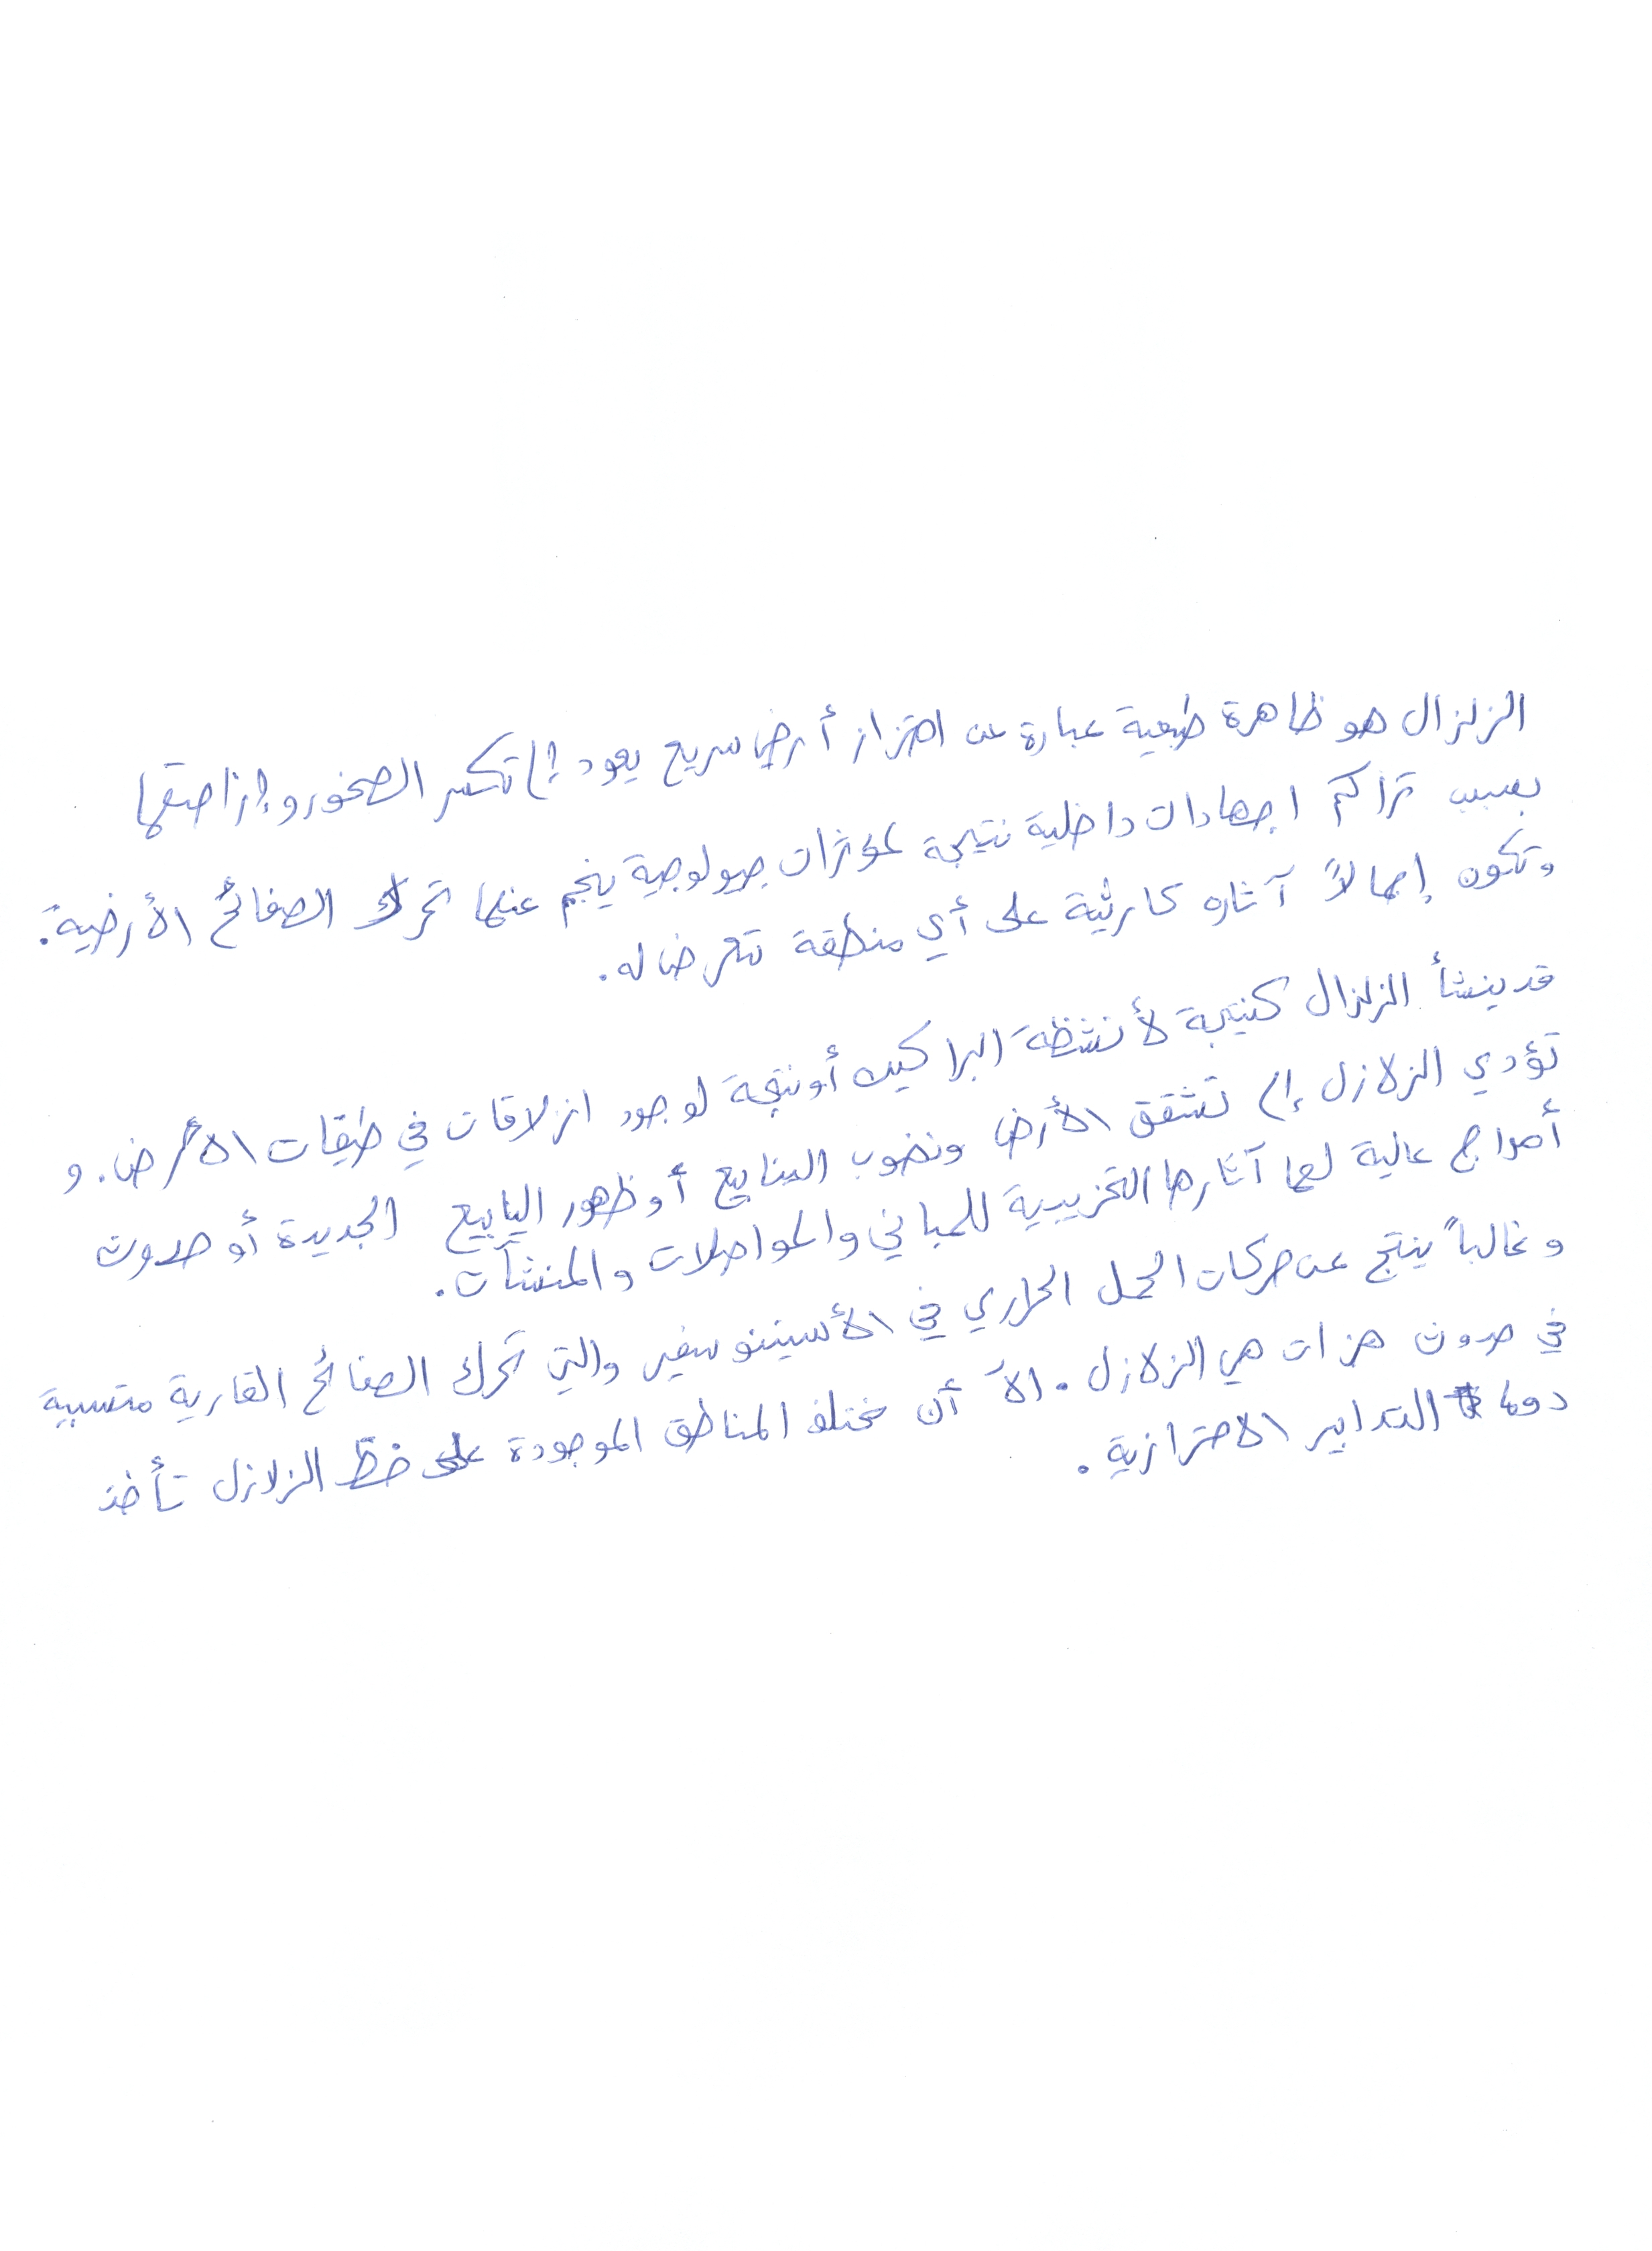 الزلزال هو ظاهرة طبعية عبارة عن اهتزاز أرضي سريع يعود إلى تكسر الصخور وإزاحتها
بسبب تراكم اجهادات داخلية نتيجة لمؤثرات جيولوجية ينجم عنها تحرك الصفائح الأرضية.
وتكون إجمالاً آثاره كارثية على أي منطقة تتعرض له.
قد ينشأ الزلزال كنتيجة لأنشطة البراكين أو نتيجة لوجود انزلاقات في طبقات الأرض. و
تؤدي الزلازل إلى تشقق الأرض ونضوب الينابيع أو ظهور الينابيع الجديدة أو حدوث
أمواج عالية لها آثارها التخريبية للمباني والمواصلات والمنشآت.
وغالباً ينتج عن حركات الحمل الحراري في الأسينوسفير والتي تحرك الصفائح القارية متسببة
في حدوث هزات هي الزلازل. الا أن مختلف المناطق الموجودة على خط الزلازل تأخذ
دوما التدابير الاحترازية.